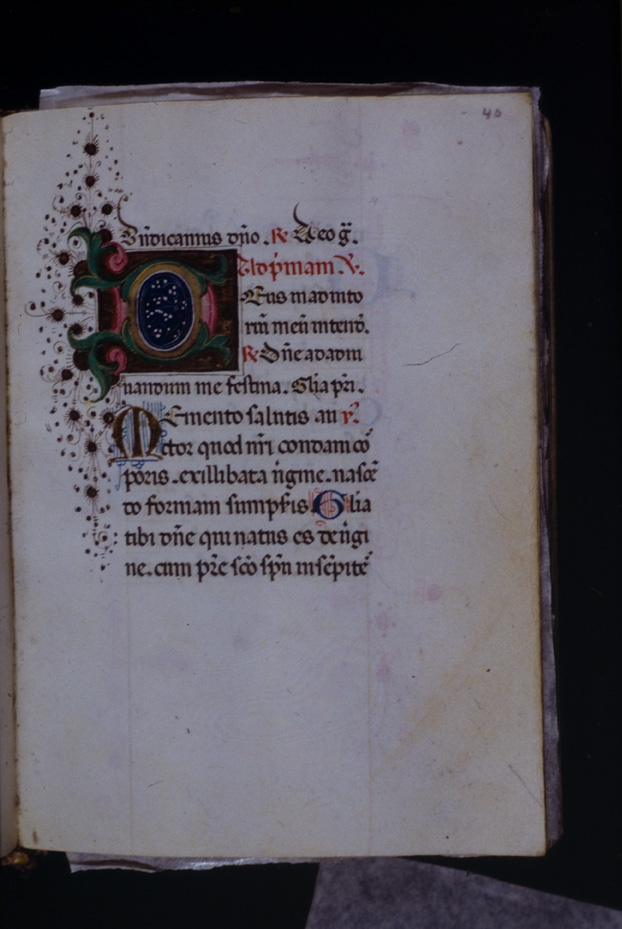 40
Bn̄dicamus dn̄o. ℞ Deo gr̄.
Ad pͥmam ℣.
Deus in ad iuto
riū meū intend̄.
℞ Dn̄e ad adiu
uandum me festina. Gl̄ia pr̄i.
Memento salutis au y̾.
ctor quod nr̄i condam cō
poris. ex illibata v̄gine. nascē
do formam sumpsͥis Gl̄ia
tibi dn̄e qui natus es de v̄gi
ne. cum pr̄e sc̄o sp̄u in sēpitē